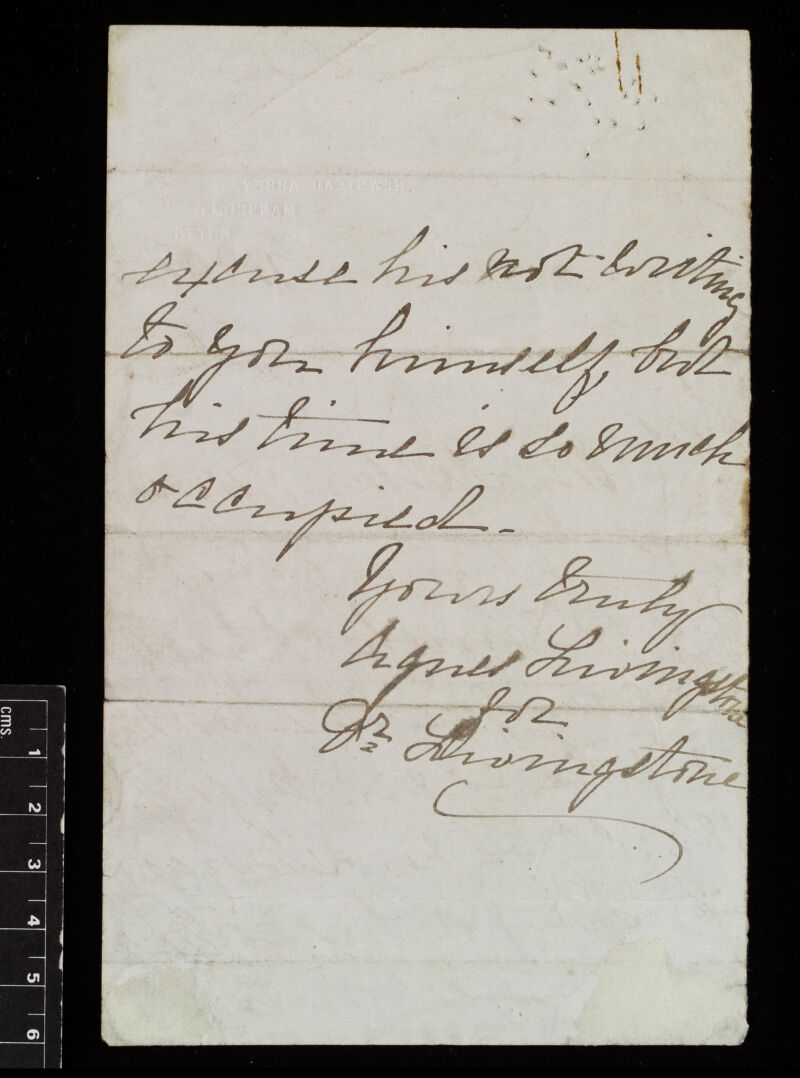 NEWSTEAD ABBEY,
MANSFIELD
NOTTS
excuse his not writing
to you himself, but
his time is so much
occupied.
Yours truly
Agnes Livingstone
for
Dr. Livingstone
cms.
1
2
3
4
5
6